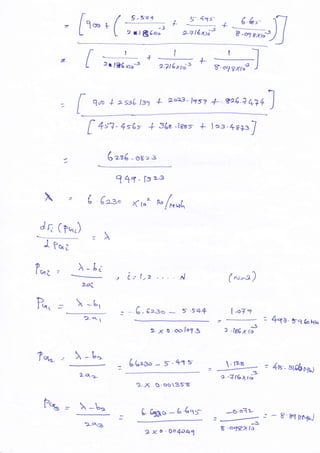 = [ 900 + ( 5.544 / 2.186x10^-3 + 5.495 / 2.716x10^-3 + 6.695 / 8.098x10^-3 ) ]
[ 1 / 2.186x10^-3 + 1 / 2.716x10^-3 + 1 / 8.098x10^-3 ]
= [ 900 + 2536.139 + 2023.1959 + 826.7474 ]
[ 457.4565 + 368.1885 + 123.4873 ]
= 6286.0823
949.1323
λ = 6.6230 x10² Rs/MWh
dFi (PGi) / dPGi = λ
PGi = λ - bi / 2ai , i = 1, 2 .... N
PG1 = λ - b1 / 2a1 = 6.6230 - 5.544 / 2 x 0.001093 = 1.079 / 2.186x10^-3
PG2 = λ - b2 / 2a2 = 6.6230 - 5.495 / 2 x 0.001358 = 1.128 / 2.716x10^-3
PG3 = λ - b3 / 2a3 = 6.6230 - 6.695 / 2 x 0.004049 = -0.072 / 8.098x10^-3